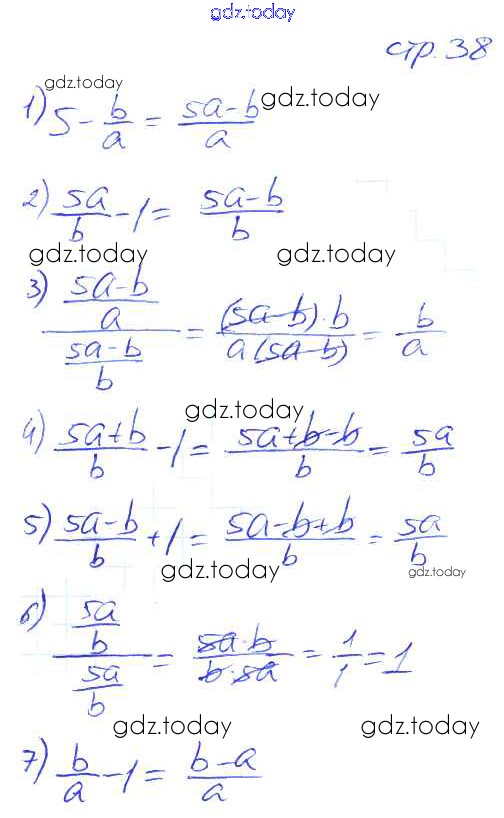 gdz.today
стр. 38
gdz.today
1) 5 - b/a = (5a-b)/a gdz.today
2) 5a/b - 1 = (5a-b)/b
gdz.today gdz.today
3) ((5a-b)/a)/((5a-b)/b) = ((5a-b)·b)/(a(5a-b)) = b/a
gdz.today
4) (5a+b)/b - 1 = (5a+b-b)/b = 5a/b
5) (5a-b)/b + 1 = (5a-b+b)/b = 5a/b
gdz.today gdz.today
6) (5a/b)/(5a/b) = (5a·b)/(b·5a) = 1/1 = 1
gdz.today gdz.today
7) b/a - 1 = (b-a)/a